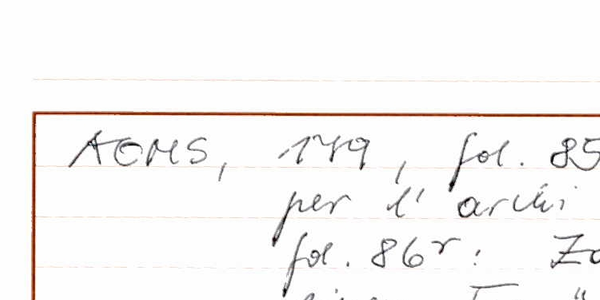 AEMS, 179, fol. 85
per l'archi
fol. 86r: Za